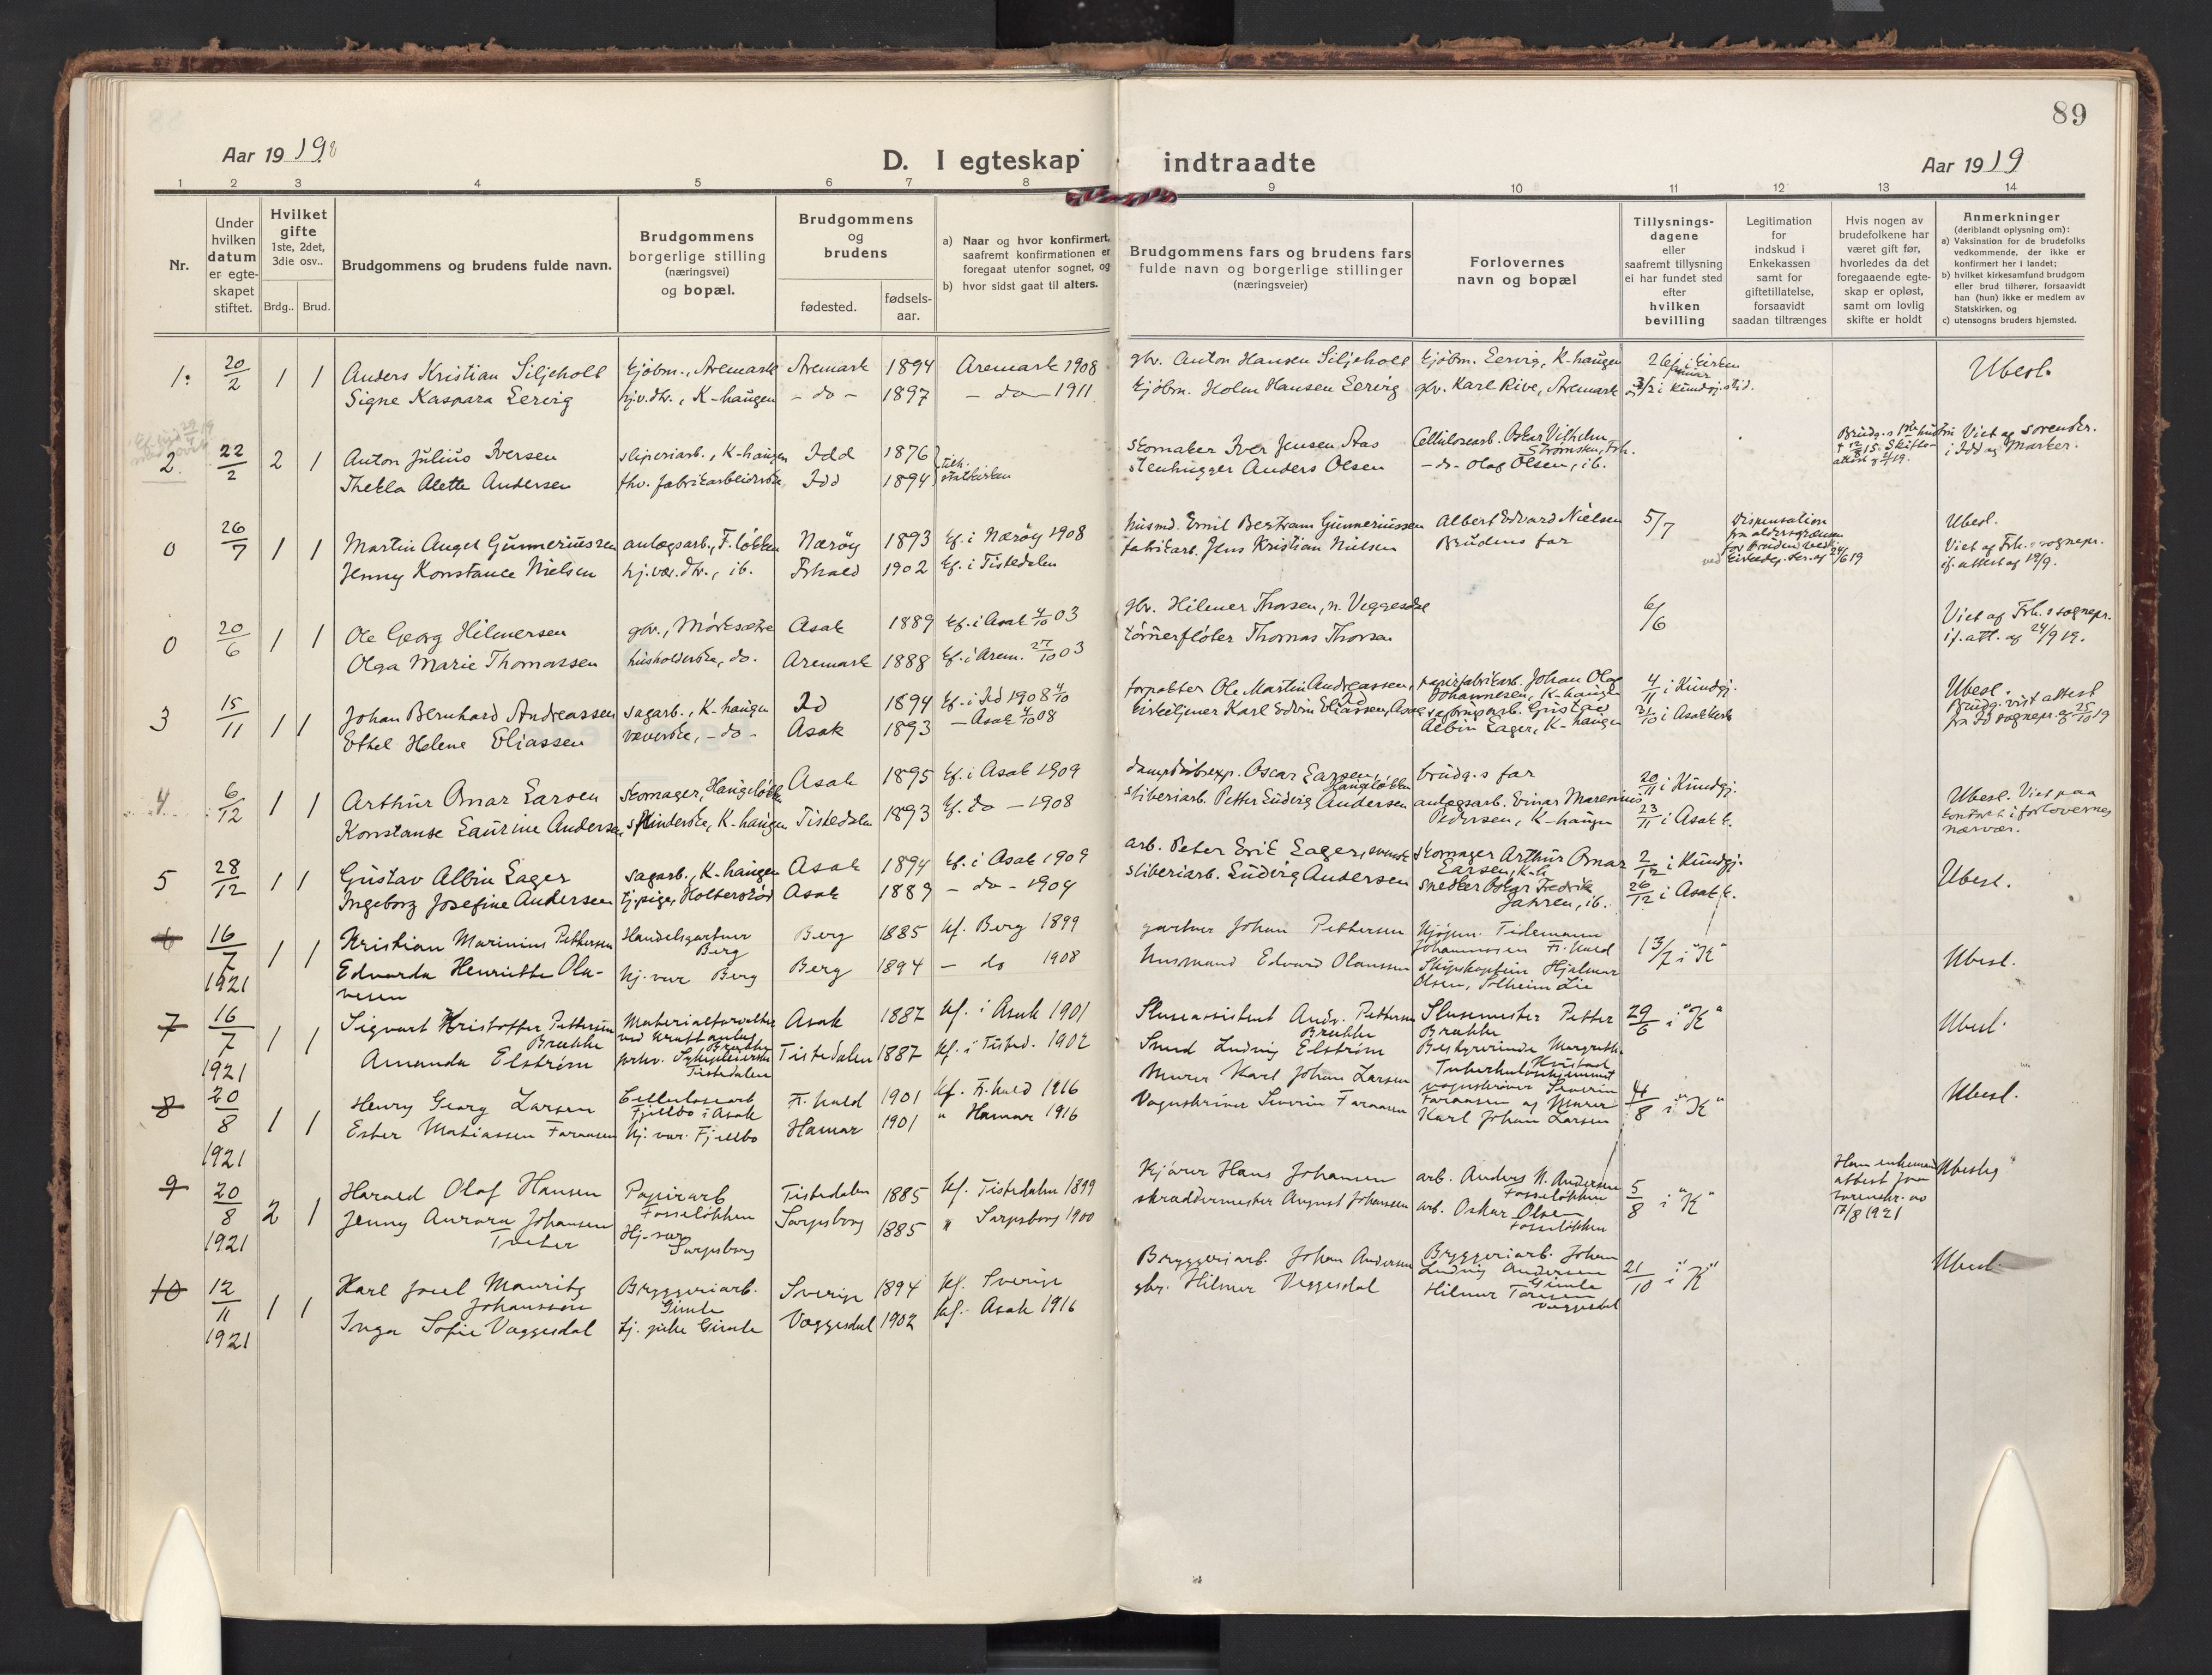 89
Aar 1919
D. I egteskap indtraadte
Aar 1919
1 2 3 4 5 6 7 8 9 10 11 12 13 14
Nr.
Under hvilken datum er egteskapet stiftet.
Hvilket gifte 1ste, 2det, 3die osv..
Brdg.. Brud.
Brudgommens og brudens fulde navn.
Brudgommens borgerlige stilling (næringsvei) og bopæl.
Brudgommens og brudens
fødested.
fødselsaar.
a) Naar og hvor konfirmert, saafremt konfirmationen er foregaat utenfor sognet, og
b) hvor sidst gaat til alters.
Brudgommens fars og brudens fars fulde navn og borgerlige stillinger (næringsveier)
Forlovernes navn og bopæl
Tillysningsdagene eller saafremt tillysning ei har fundet sted efter hvilken bevilling
Legitimation for indskud i Enkekassen samt for giftetillatelse, forsaavidt saadan tiltrænges
Hvis nogen av brudefolkene har været gift før, hvorledes da det foregaaende egteskap er opløst, samt om lovlig skifte er holdt
Anmerkninger (deriblandt oplysning om):
a) Vaksination for de brudefolks vedkommende, der ikke er konfirmert her i landet;
b) hvilket kirkesamfund brudgom eller brud tilhører, forsaavidt han (hun) ikke er medlem av Statskirken, og
c) utensogns bruders hjemsted.
1. 20/2 1 1 Anders Kristian Siljeholt kjøbm., Aremark Aremark 1894 Aremark 1908 gbr. Anton Hansen Siljeholt kjøbm. Lervig, K-haugen Ubesl.
Signe Kaspara Lervig hj.v.dtr., K-haugen - do - 1897 - do - 1911 kjøbm. Holm Hansen Lervig gbr. Karl Rive, Aremark
2. 22/2 2 1 Anton Julius Iversen sliperiarb., K-haugen Idd 1876 skomaker Iver Jensen Aas Cellulosearb. Oskar Vilhelm Strømsken, Frh. Viet av sorenskr. i Idd og Marker.
Thekla Alette Andersen fhv. fabrikarbeiderske, Idd 1894 statskirken stenhugger Anders Olsen - do - Olaf Olsen, ib.
0 26/7 1 1 Martin Angel Gunneriussen anlægsarb., F.løkken Nærøy 1893 kf. i Nærøy 1908 husmd. Emil Bertram Gunneriussen Albert Edvard Nielsen 5/7 Dispensation Ubesl.
Jenny Konstance Nielsen hj.vær.dtr., ib. Frhald 1902 kf. i Tistedalen fabrikarb. Jens Kristian Nielsen Brudens far Viet av Frh.s sognepr.
0 20/6 1 1 Ole Georg Hilmersen gbr., Mørksætre Asak 1889 kf. i Asak 4/10 03 gbr. Hilmer Thorsen, n. Veggesdal 6/6 Viet av Frh.s sognepr.
Olga Marie Thomassen husholderske, do. Aremark 1888 kf. i Arem. 27/10 03 tømmerfløter Thomas Thorsen if. att. av 24/9 19.
3 15/11 1 1 Johan Bernhard Andreassen sagarb., K-haugen Id 1894 kf. i Id 1908 4/10 forpakter Ole Martin Andreassen, Id papirfabrikarb. Johan Olaf Johannesen, K-haugen 4/11 i Kundgj. Ubesl.
Ethel Helene Eliassen væverske, - do - Asak 1893 - Asak 4/10 08 kirketjener Karl Edvin Eliassen, Asak sagbruksarb. Gustav Albin Lager, K-haugen i Asak kirke
4 6/12 1 1 Arthur Omar Larsen skomager, Haugeløkken Asak 1895 kf. i Asak 1909 dampskibsexp. Oscar Larsen, Haugeløkken brudg.s far 20/11 i Kundgj. Ubesl. Viet paa kontoret i forlovernes nærvær.
Konstanse Laurine Andersen spinderske, K-haugen Tistedalen 1893 kf. do - 1908 sliberiarb. Petter Ludvig Andersen anlægsarb. Einar Marenius Pedersen, K-haugen 23/11 i Asak k.
5 28/12 1 1 Gustav Albin Lager sagarb., K-haugen Asak 1894 kf. i Asak 1909 arb. Peter Erik Lager, svensk skomager Arthur Omar Larsen, K-h. 2/12 i Kundgj. Ubesl.
Ingeborg Josefine Andersen tj.pige, Holtersrød Asak 1889 - do - 1904 sliberiarb. Ludvig Andersen snedker Oskar Fredrik Jahren, ib. 26/12 i Asak k.
6 16/7 1921 1 1 Kristian Marinius Pettersen Handelsgartner Berg Berg 1885 kf. Berg 1899 gartner Johan Pettersen Kjøpm. Tidemann Johannessen Fr.hald 13/7 i "K" Ubesl.
Edvarda Henriette Olavesen Hj. vær Berg Berg 1894 - do 1908 Husmand Edvard Olaussen Skipskaptein Hjalmar Olsen, Solheim Lie
7 16/7 1921 1 1 Sigvart Kristoffer Pettersen Brække Materialforvalter ved Kraftanlæg Brække Asak 1887 kf. i Asak 1901 Sluseassistent Andr. Pettersen Brække Slusemester Petter Brække 29/6 i "K" Ubesl.
Amanda Elstrøm Tistedalen Tistedalen 1887 kf. i Tisted. 1902 Smed Ludvig Elstrøm Bestyrerinde Margrethe Tuberkulosehjemmet
8 20/8 1921 1 1 Henry Georg Larsen Cellulosearb Fjellbo i Asak Fr.hald 1901 kf. Fr.hald 1916 Murer Karl Johan Larsen vognskriver Severin Faraasen og Murer Karl Johan Larsen 4/8 i "K" Ubesl.
Ester Matiassen Faraasen Hj. vær. Fjellbo Hamar 1901 " Hamar 1916 Vognskriver Severin Faraasen
9 20/8 1921 2 1 Harald Olaf Hansen Papirarb Fosseløkken Tistedalen 1885 kf. Tistedalen 1899 Kjører Hans Johansen arb. Anders N. Andersen Fosseløkken 5/8 i "K" Ubeslg
Jenny Aurora Johansen Hj. vær Sarpsborg Sarpsborg 1885 " Sarpsborg 1900 skræddermester August Johansen arb. Oskar Olsen Fosseløkken 17/8 1921
10 12/11 1921 1 1 Karl Joel Mauritz Johansson Bryggeriarb. Gimle Sverige 1894 kf. Sverige Bryggeriarb. Johan Andersen Bryggeriarb. Johan Ludvig Andersen Gimle 21/10 i "K" Ubesl.
Inga Sofie Vaggesdal tj. pike Gimle Vaggesdal 1902 kf. Asak 1916 gbr. Hilmer Veggesdal Hilmer Torsen Vaggesdal